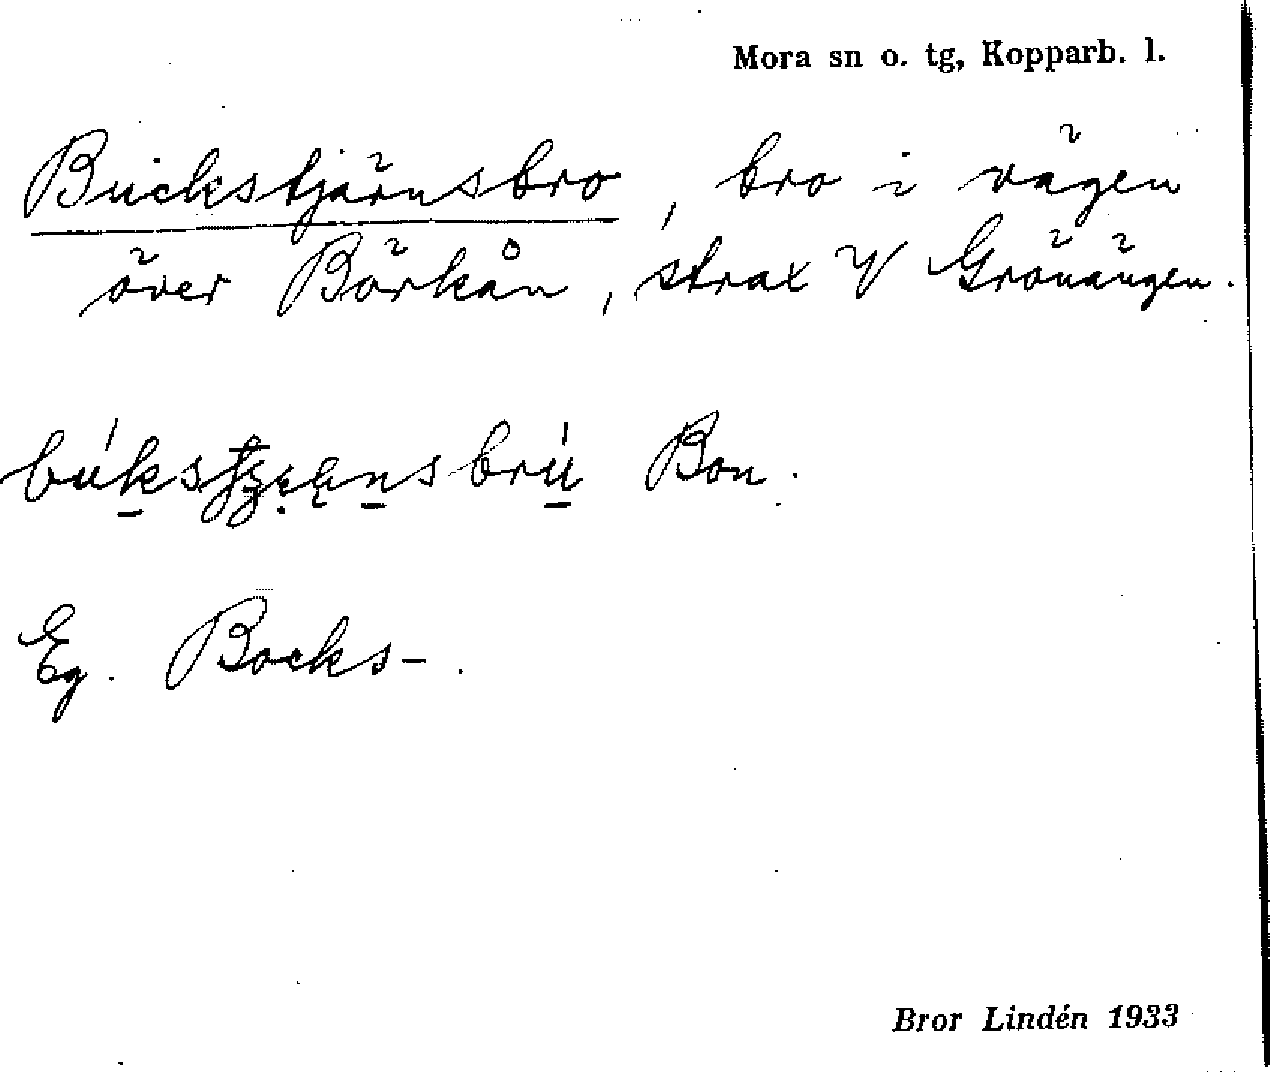 Mora sn o. tg, Kopparb. l.
Buckstjärnsbro, bro i vägen
över Börkån, strax V Grönängen.
Bon.
Eg. Bocks-.
Bror Lindén 1933